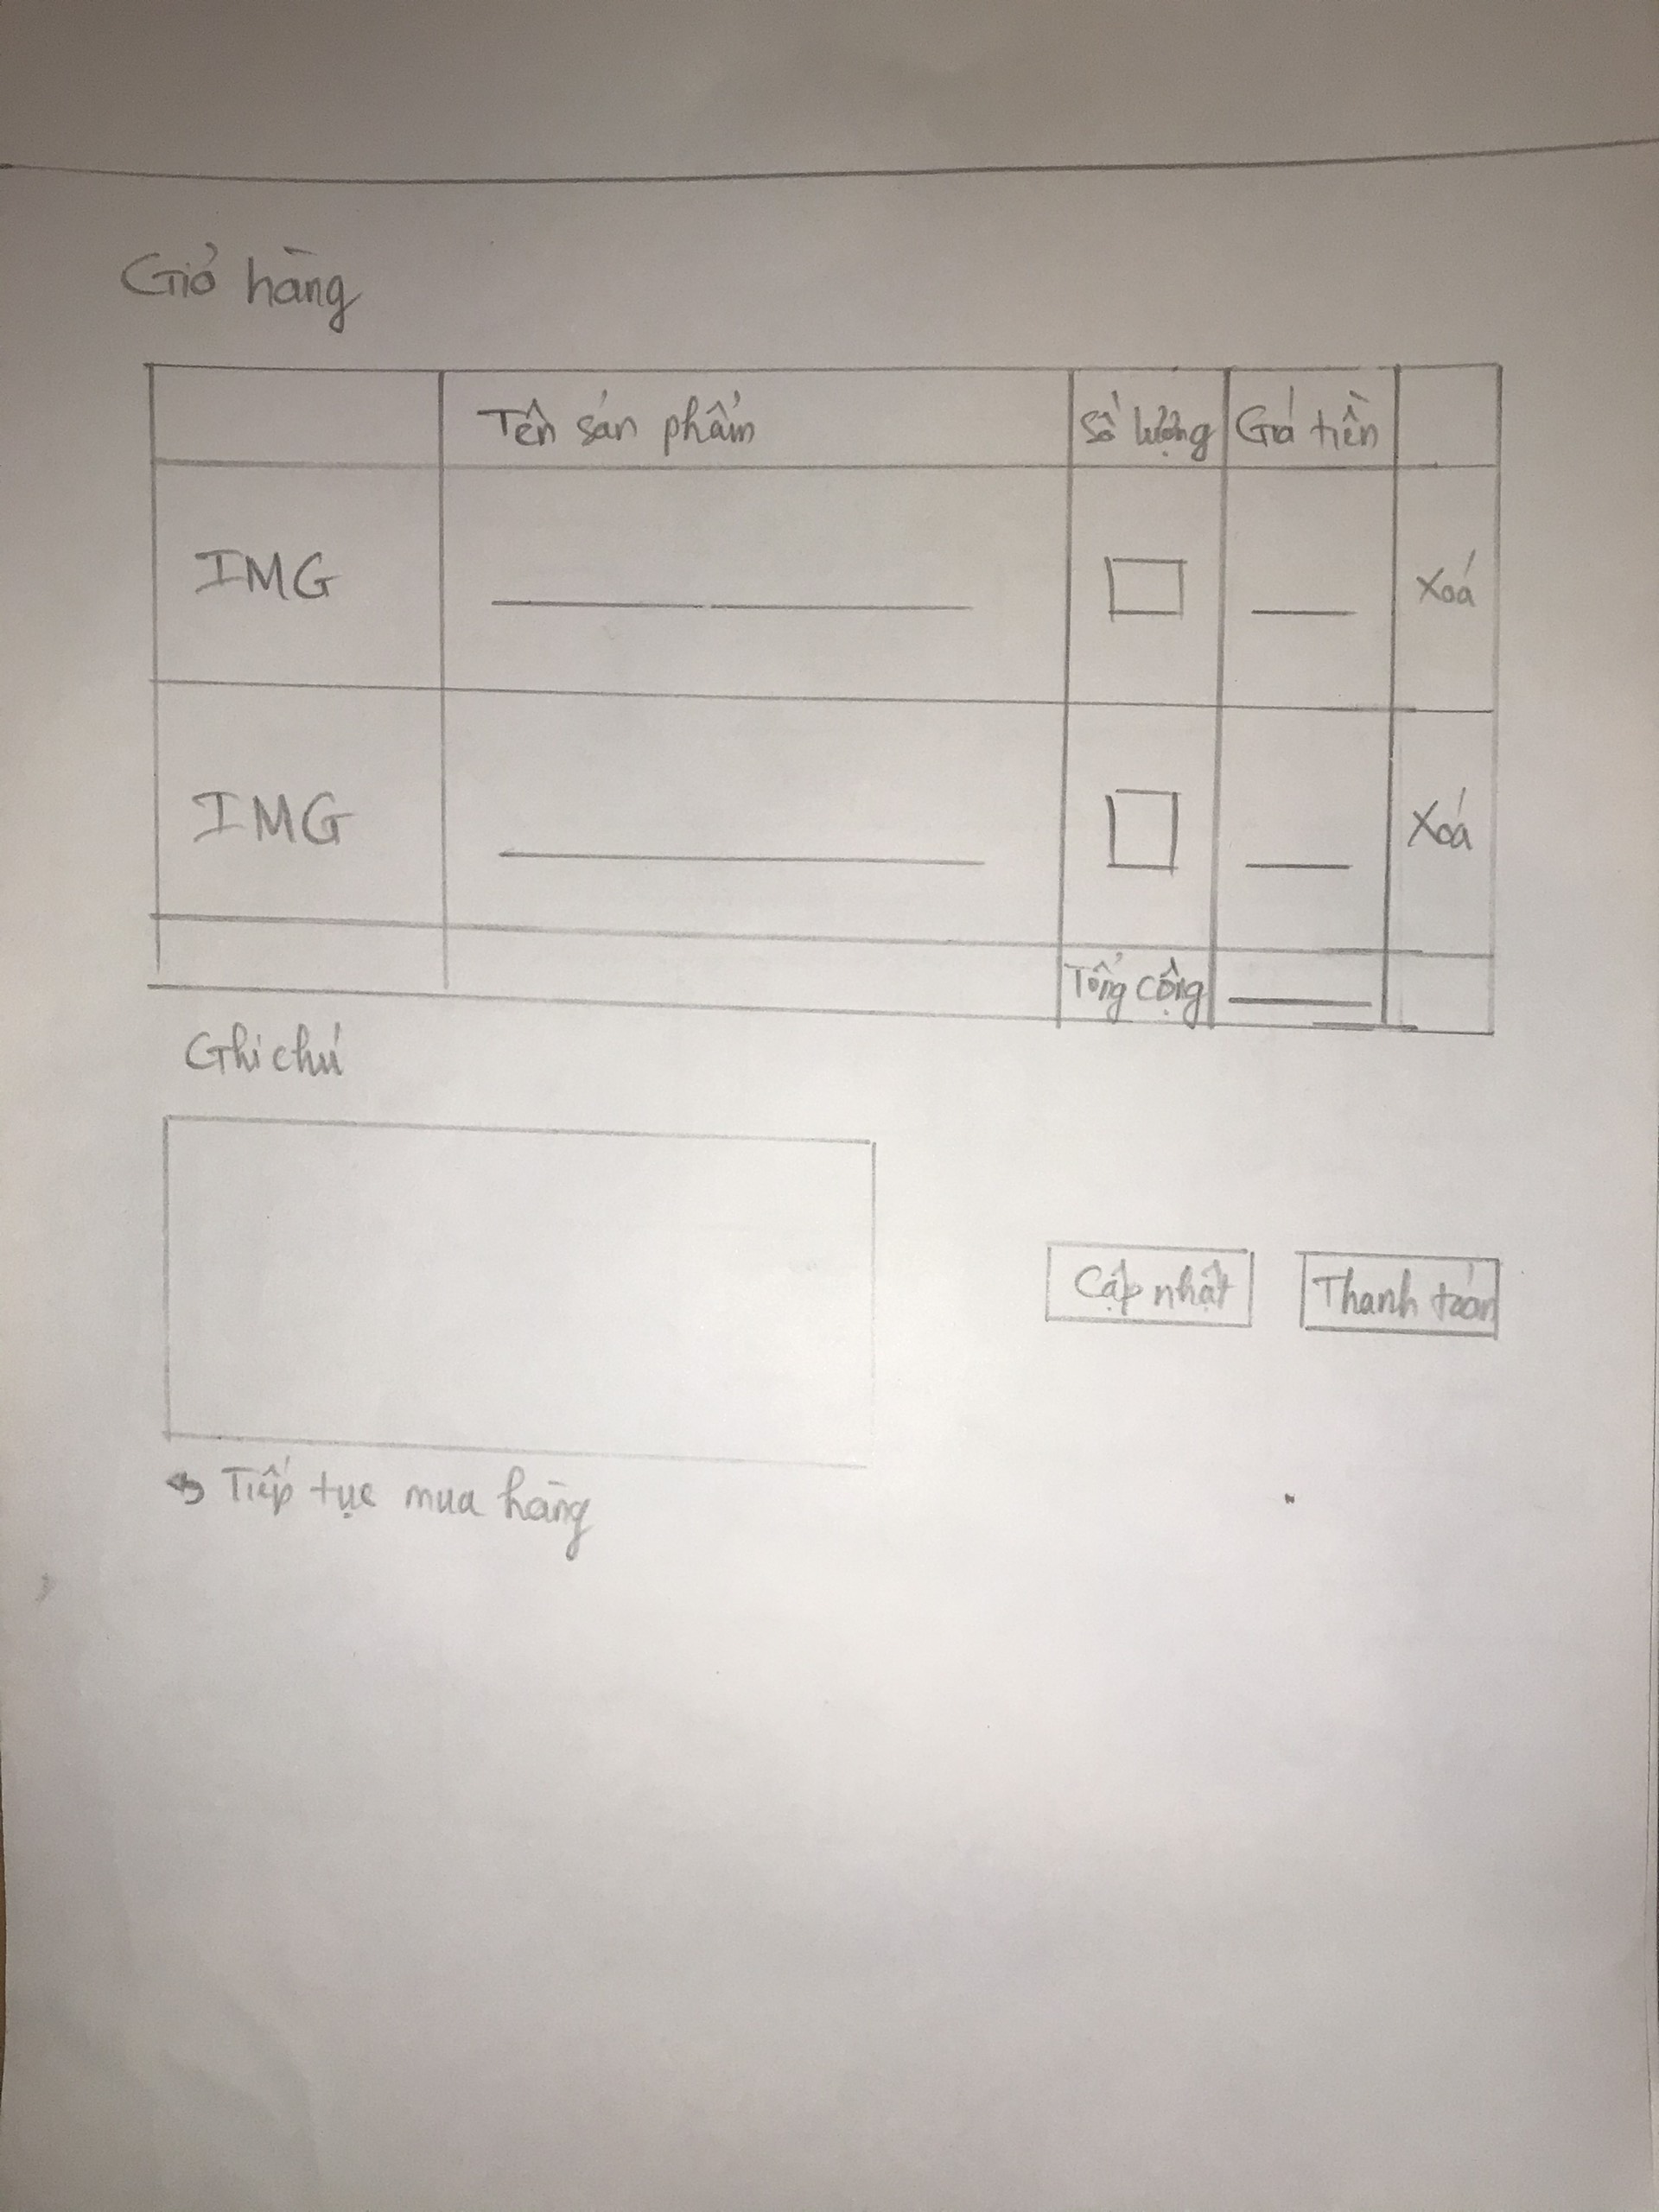 Giỏ hàng
Tên sản phẩm Số lượng Giá tiền
IMG Xoá
IMG Xoá
Tổng cộng
Ghi chú
Cập nhật Thanh toán
Tiếp tục mua hàng